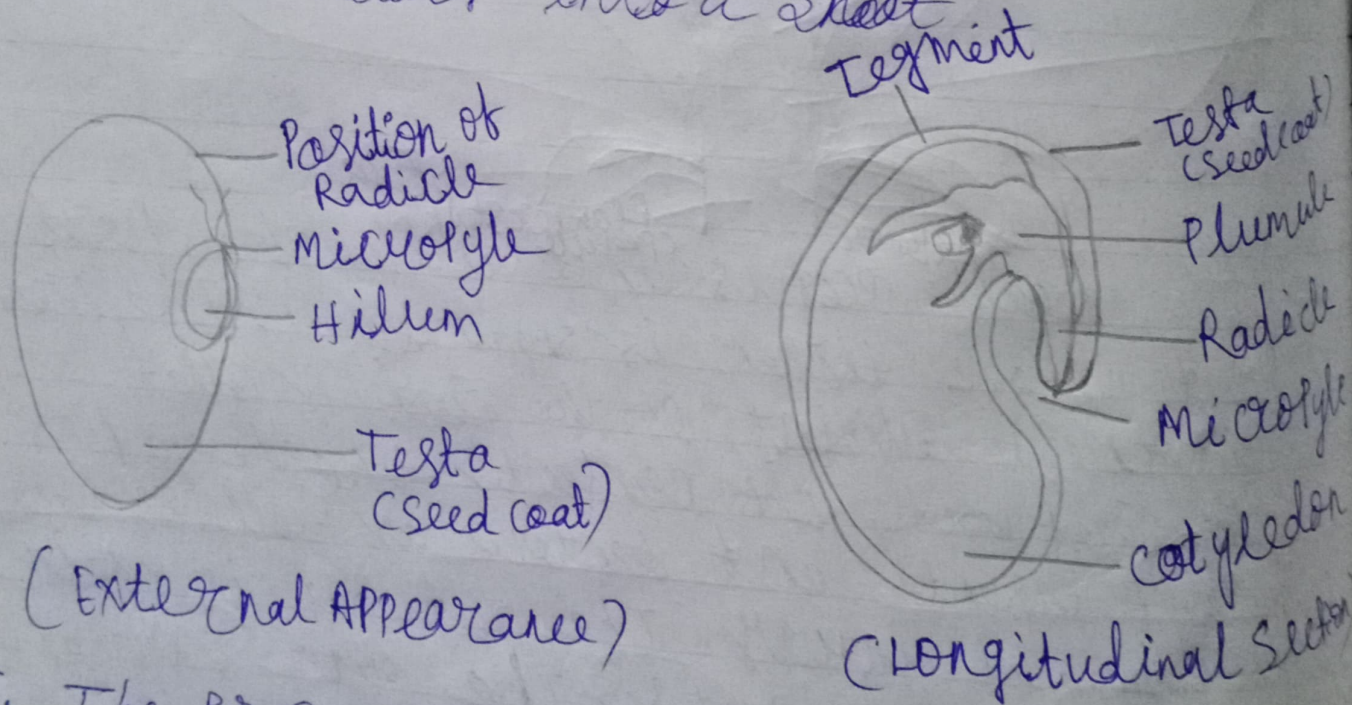 into a shoot
Position of
Radicle
Micropyle
Hillum
Testa
(seed coat)
(External Appearance)
Tegment
Testa
(seed coat)
Plumule
Radicle
Micropyle
cotyledon
(Longitudinal Section
The